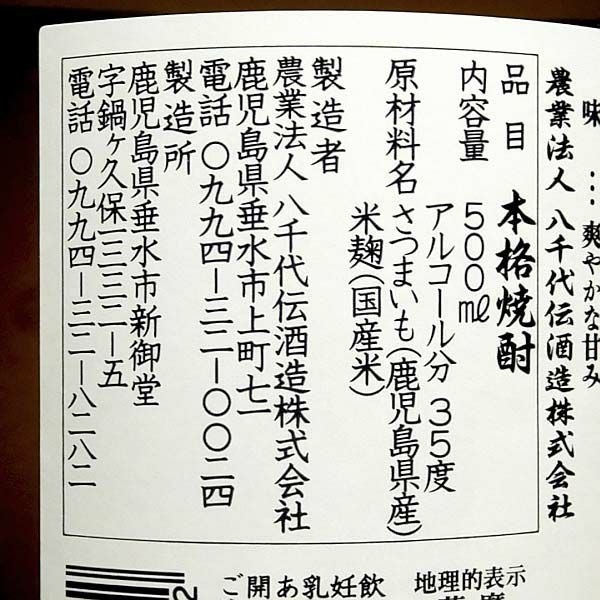 味 … 爽やかな甘み
農業法人 八千代伝酒造株式会社
品目 本格焼酎
内容量 500ml
アルコール分 35度
原材料名 さつまいも(鹿児島県産)
米麹(国産米)
製造者
農業法人 八千代伝酒造株式会社
鹿児島県垂水市上町七一
電話 〇九九四―三二―〇〇二四
製造所
鹿児島県垂水市新御堂
字鍋ヶ久保一三三二―五
電話 〇九九四―三二―八二八二
地理的表示
飲
妊
乳
あ
開
ご
2